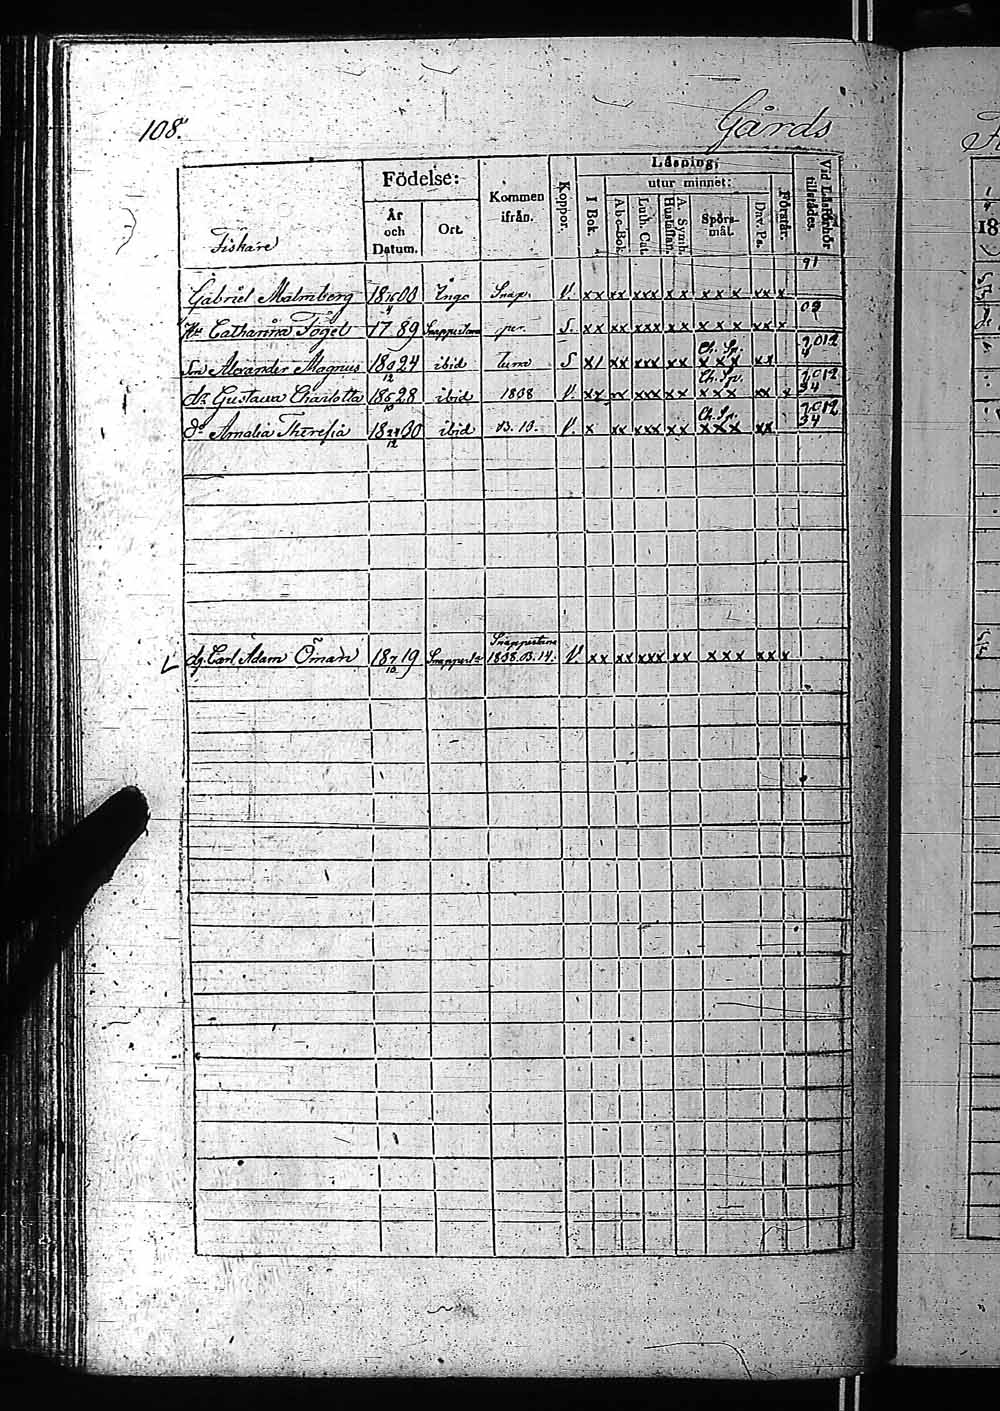 108.
Gårds
Fiskare
Födelse:
År och Datum.
Ort.
Kommen ifrån.
Koppor.
Läsning;
I Bok.
utur minnet:
Abc-Bok.
Luth. Cat.
A. Symb. Hustaflan.
Spörsmål.
Dav. Ps.
Förstår.
Vid Läsförhör tillstädes.
Gabriel Malmberg 18 16/4 00 Ingo Snap. V. xx xx xxx xx xxx xx x
Catharina Fogel 1789 Snappertuna per. S. xx xx xxx xx xxx xx x
Son Alexander Magnus 18 9/12 24 ibid tuna S x/ xx xxx xx Ch. Sp. xxx xx
dr Gustava Charlotta 18 5/10 28 ibid 1838 V. xx xx xxx xx Ch. Sp. xxx xx x
do Amalia Theresia 18 24/12 30 ibid 13. 10. V. x xx xxx xx Ch. Sp. xxx xx
dg. Carl Adam Öman 18 7/10 19 Snappert. Snappertuna 1838. 13. 14. V. xx xx xxx xx xxx xx x
18